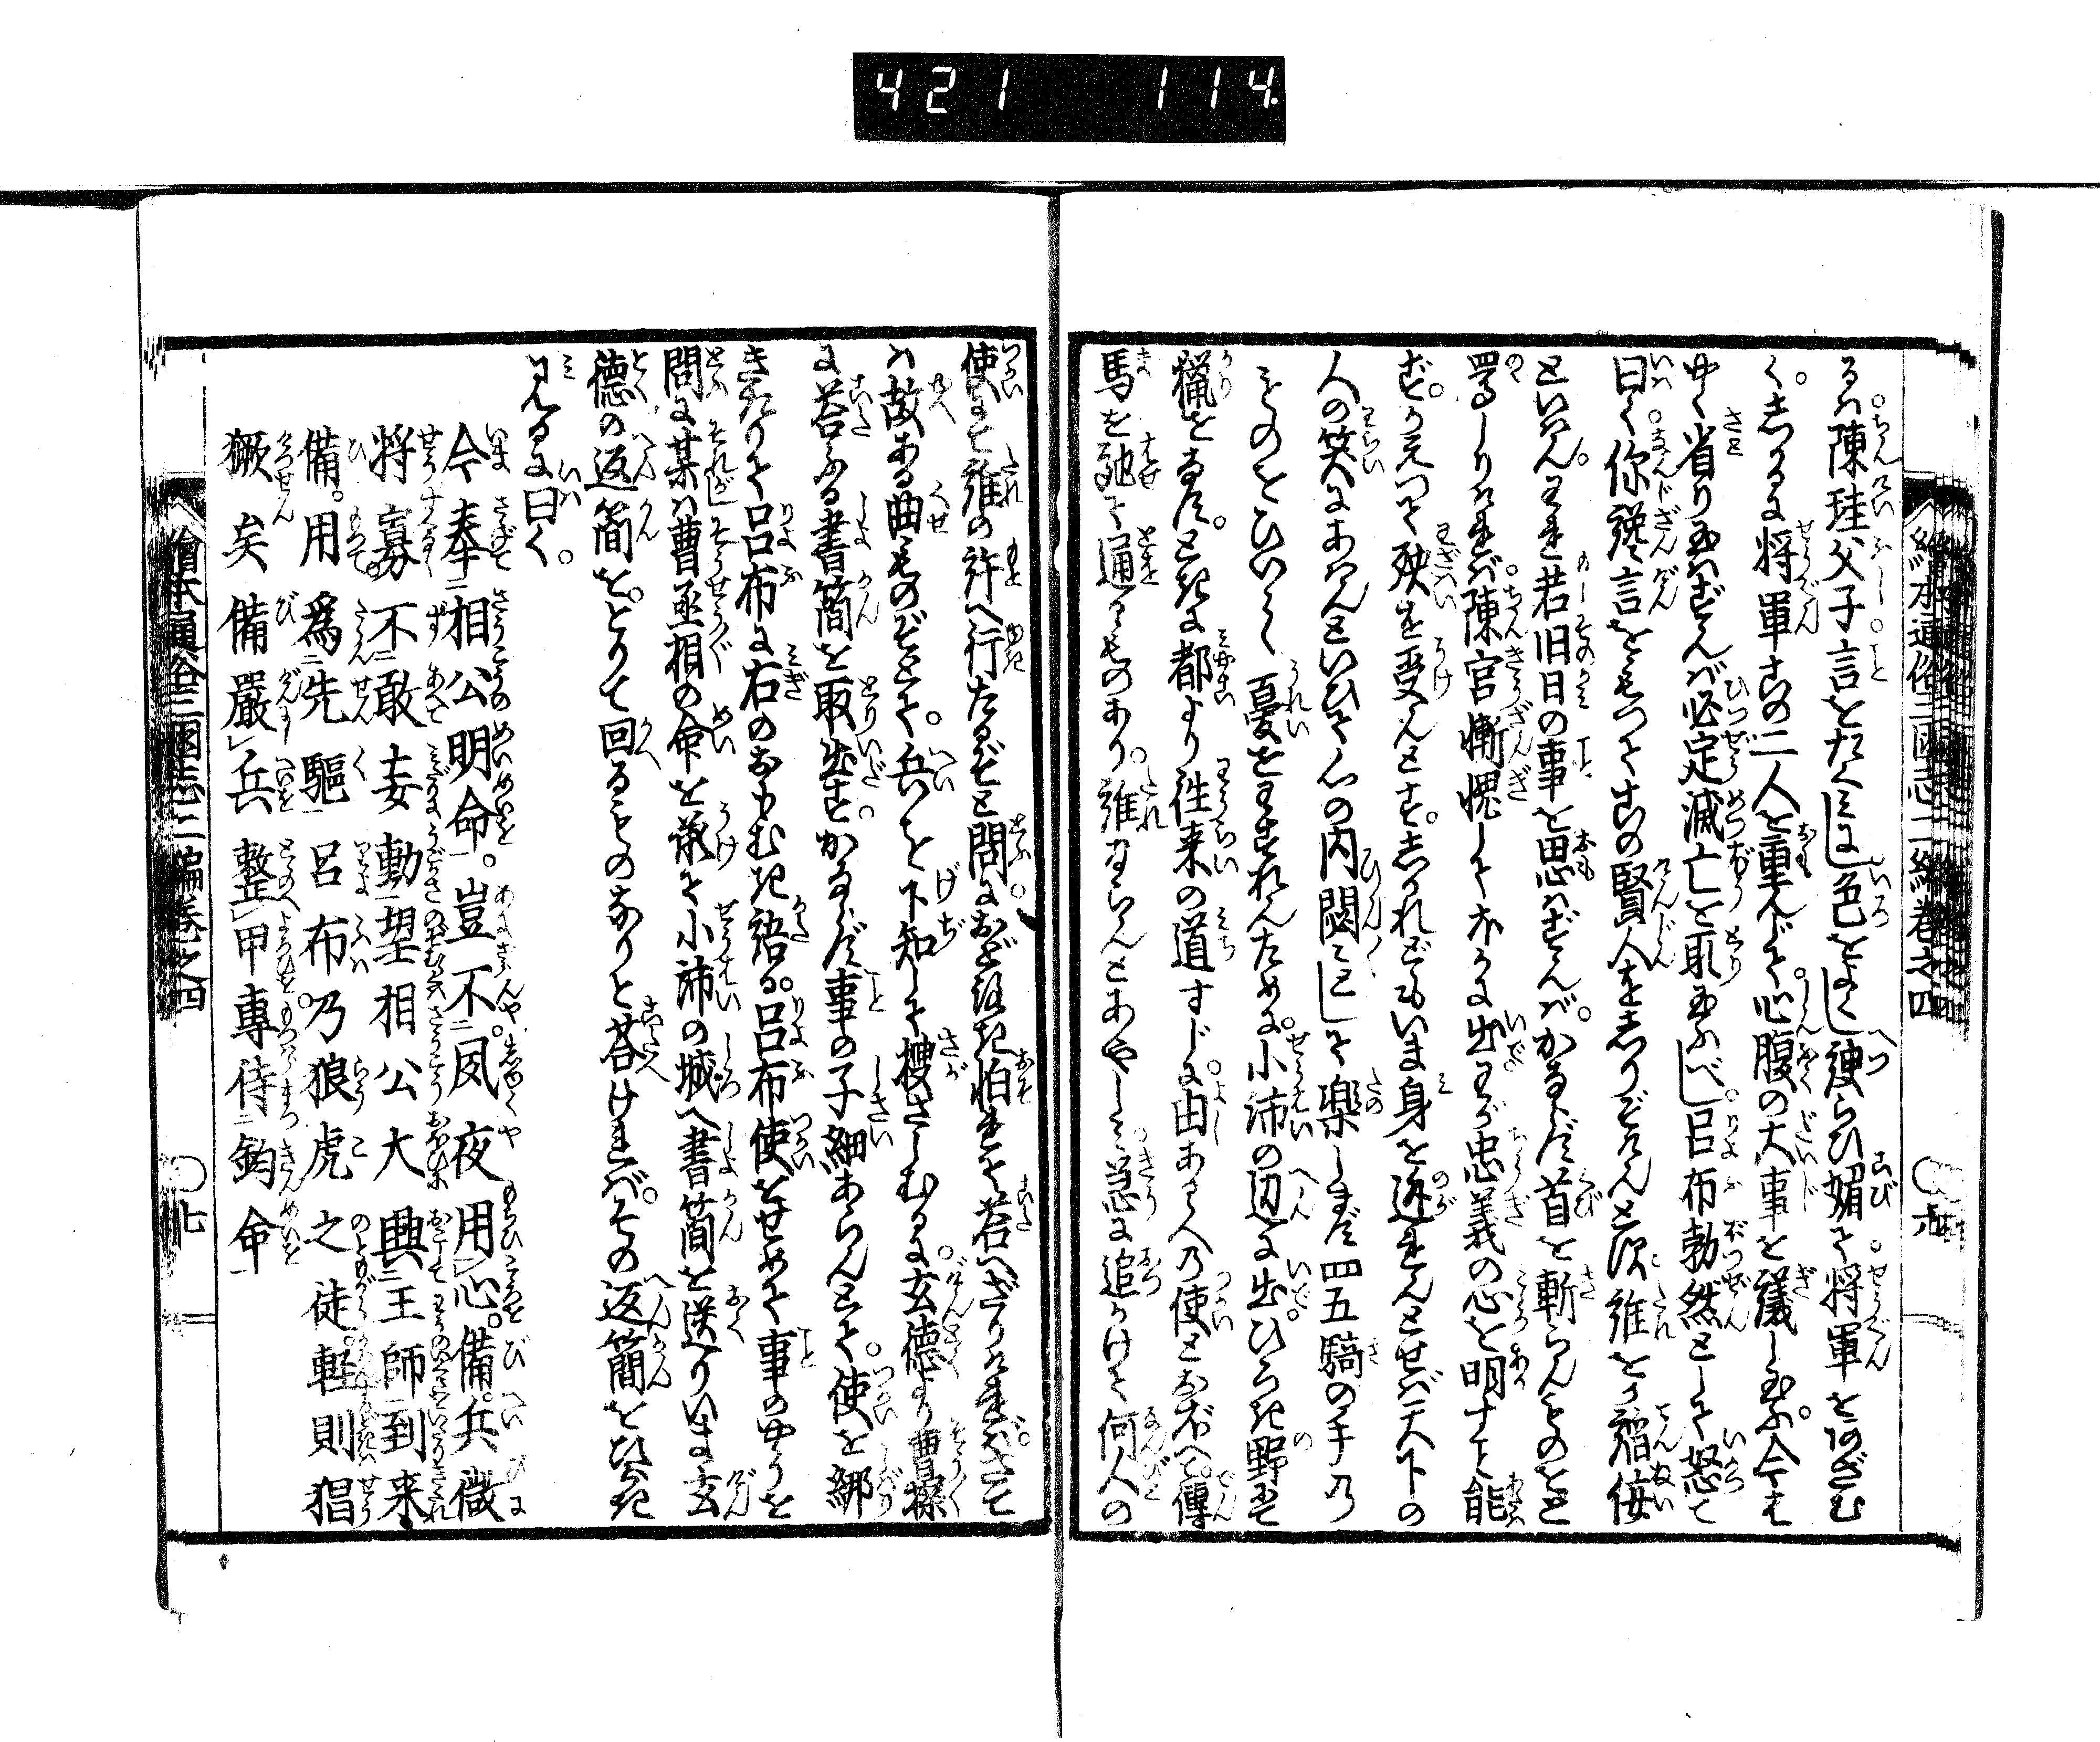 421 114
繪本通俗三國志二編卷之四
るハ陳珪父子言をたくミに色をよくし諛らひ媚て将軍をあざむ
く。しかるに将軍この二人を重んじて心腹の大事を議し玉ふ。今は
やく省り玉ハずんバ必定滅亡を取玉ふべし。呂布勃然として怒て
曰く。你讒言をもつてこの賢人をしりぞけんと欲。誰をか稲佞
といはん。われ若旧日の事を思ハずんバ。かならず首を斬らんものをと
罵しりけれバ。陳宮慚愧して外に出。わが忠義の心を明すこと能
ず。かえつて殃を受んとす。しかれどもいま身を遁れんとせバ天下の
人の笑にあハんといひて心の内悶ミとして楽しまず。四五騎の手乃
ものをひいて。憂をわすれんために。小沛の辺に出。ひろき野にて
猟をなす。ときに都より往来の道すじに。由ありへ乃使とおぼへて。傳
馬を馳て通るものあり。誰ならんとあやしミ。急に追かけて何人の
使にて誰の許へ行たるぞと問に。おどろき怕れて荅へざりけれバ。さて
ハ故ある曲ものぞとて。兵を下知して捜さしむるに。玄徳より曹操
に荅ふる書簡を取出す。かならず事の子細あらんとて。使を綁
きたりて呂布に右のおもむき語る。呂布使をせめて事のやうを
問に某ハ曹丞相の命を承て小沛の城へ書簡を送り。いま玄
徳の返簡を。とりて回るものなりと荅けれバ。その返簡をひらき
ミるに曰く。
今奉相公明命。豈不夙夜用心。備。兵微
将寡不敢妄動望相公大興王師到来
備。用爲先驅呂布。乃狼虎之徒。軽則猖
獗矣備嚴兵整甲專待鈞命
繪本通俗三國志二編卷之四
〇七